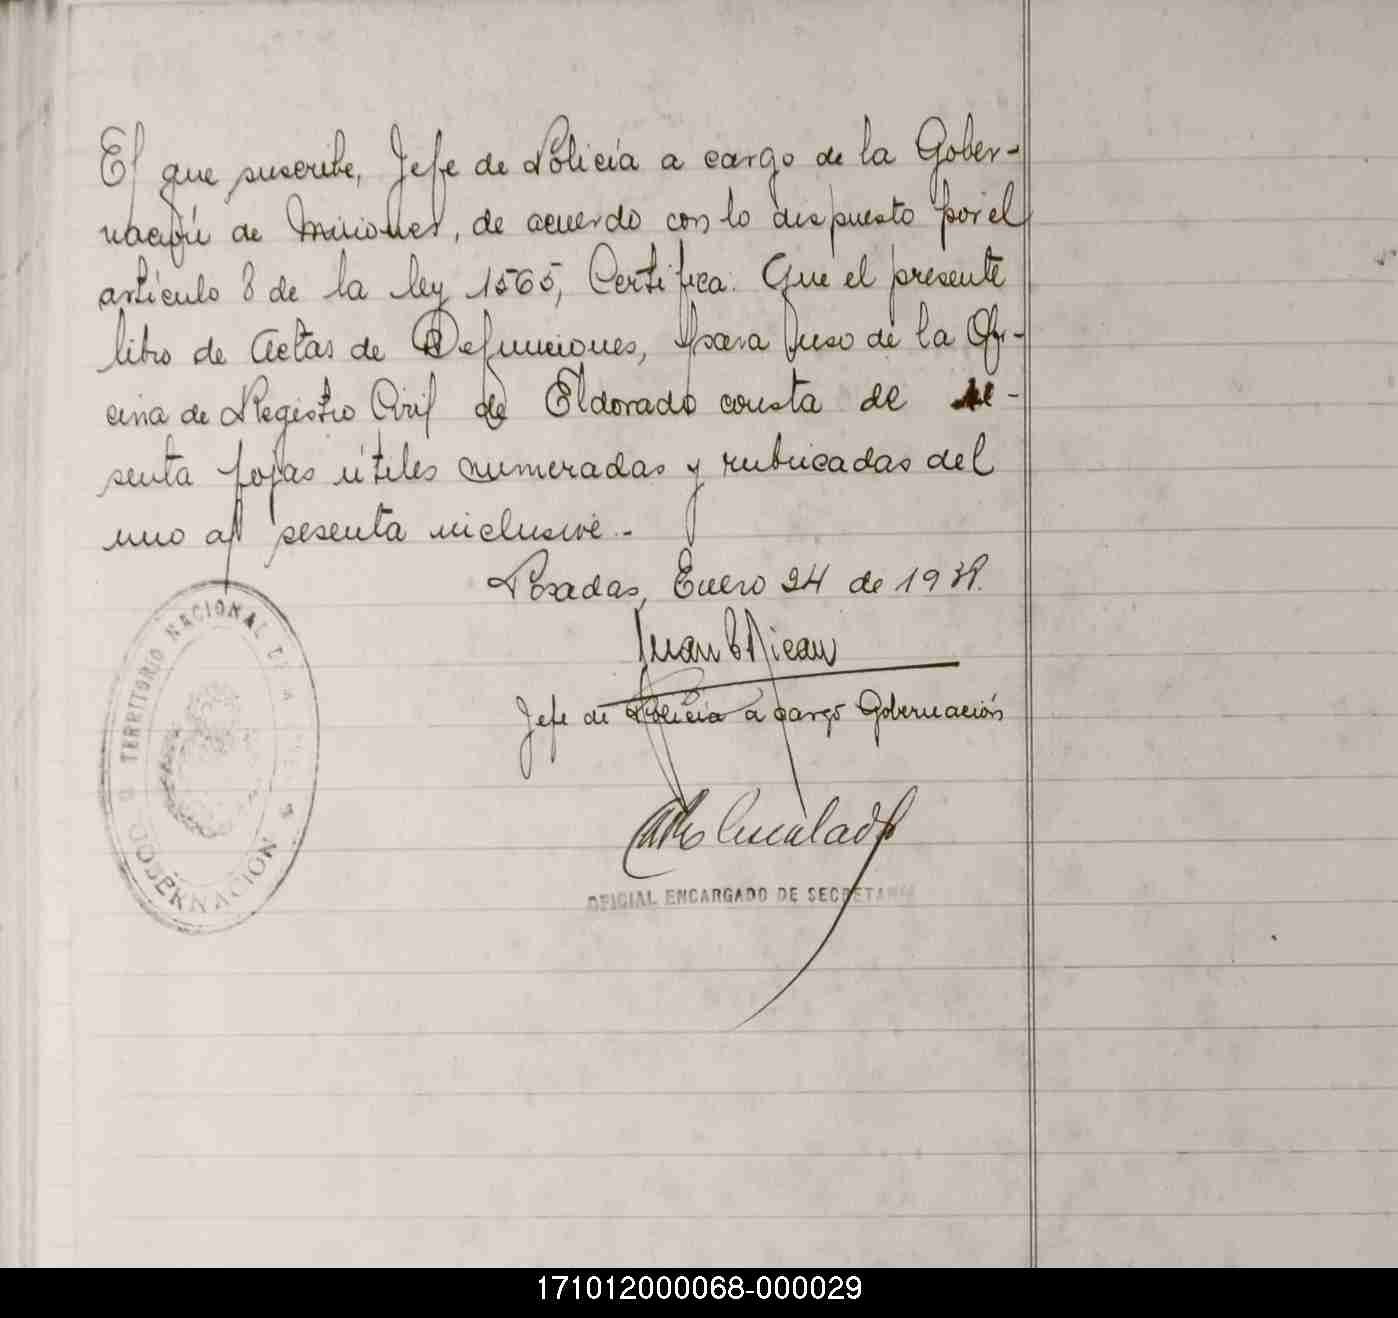 El que suscribe, Jefe de Policía a cargo de la Gober-
nación de Misiones, de acuerdo con lo dispuesto por el
artículo 8 de la ley 1565, Certifica: Que el presente
libro de Actas de Defunciones, para uso de la Ofi-
cina de Registro Civil de Eldorado consta de se-
senta fojas útiles numeradas y rubricadas del
uno al sesenta inclusive.-
Posadas, Enero 24 de 193
Juan
Jefe de Policía a cargo Gobernación
OFICIAL ENCARGADO DE SECRETARIA
TERRITORIO NACIONAL DE
GOBERNACIÓN
171012000068-000029